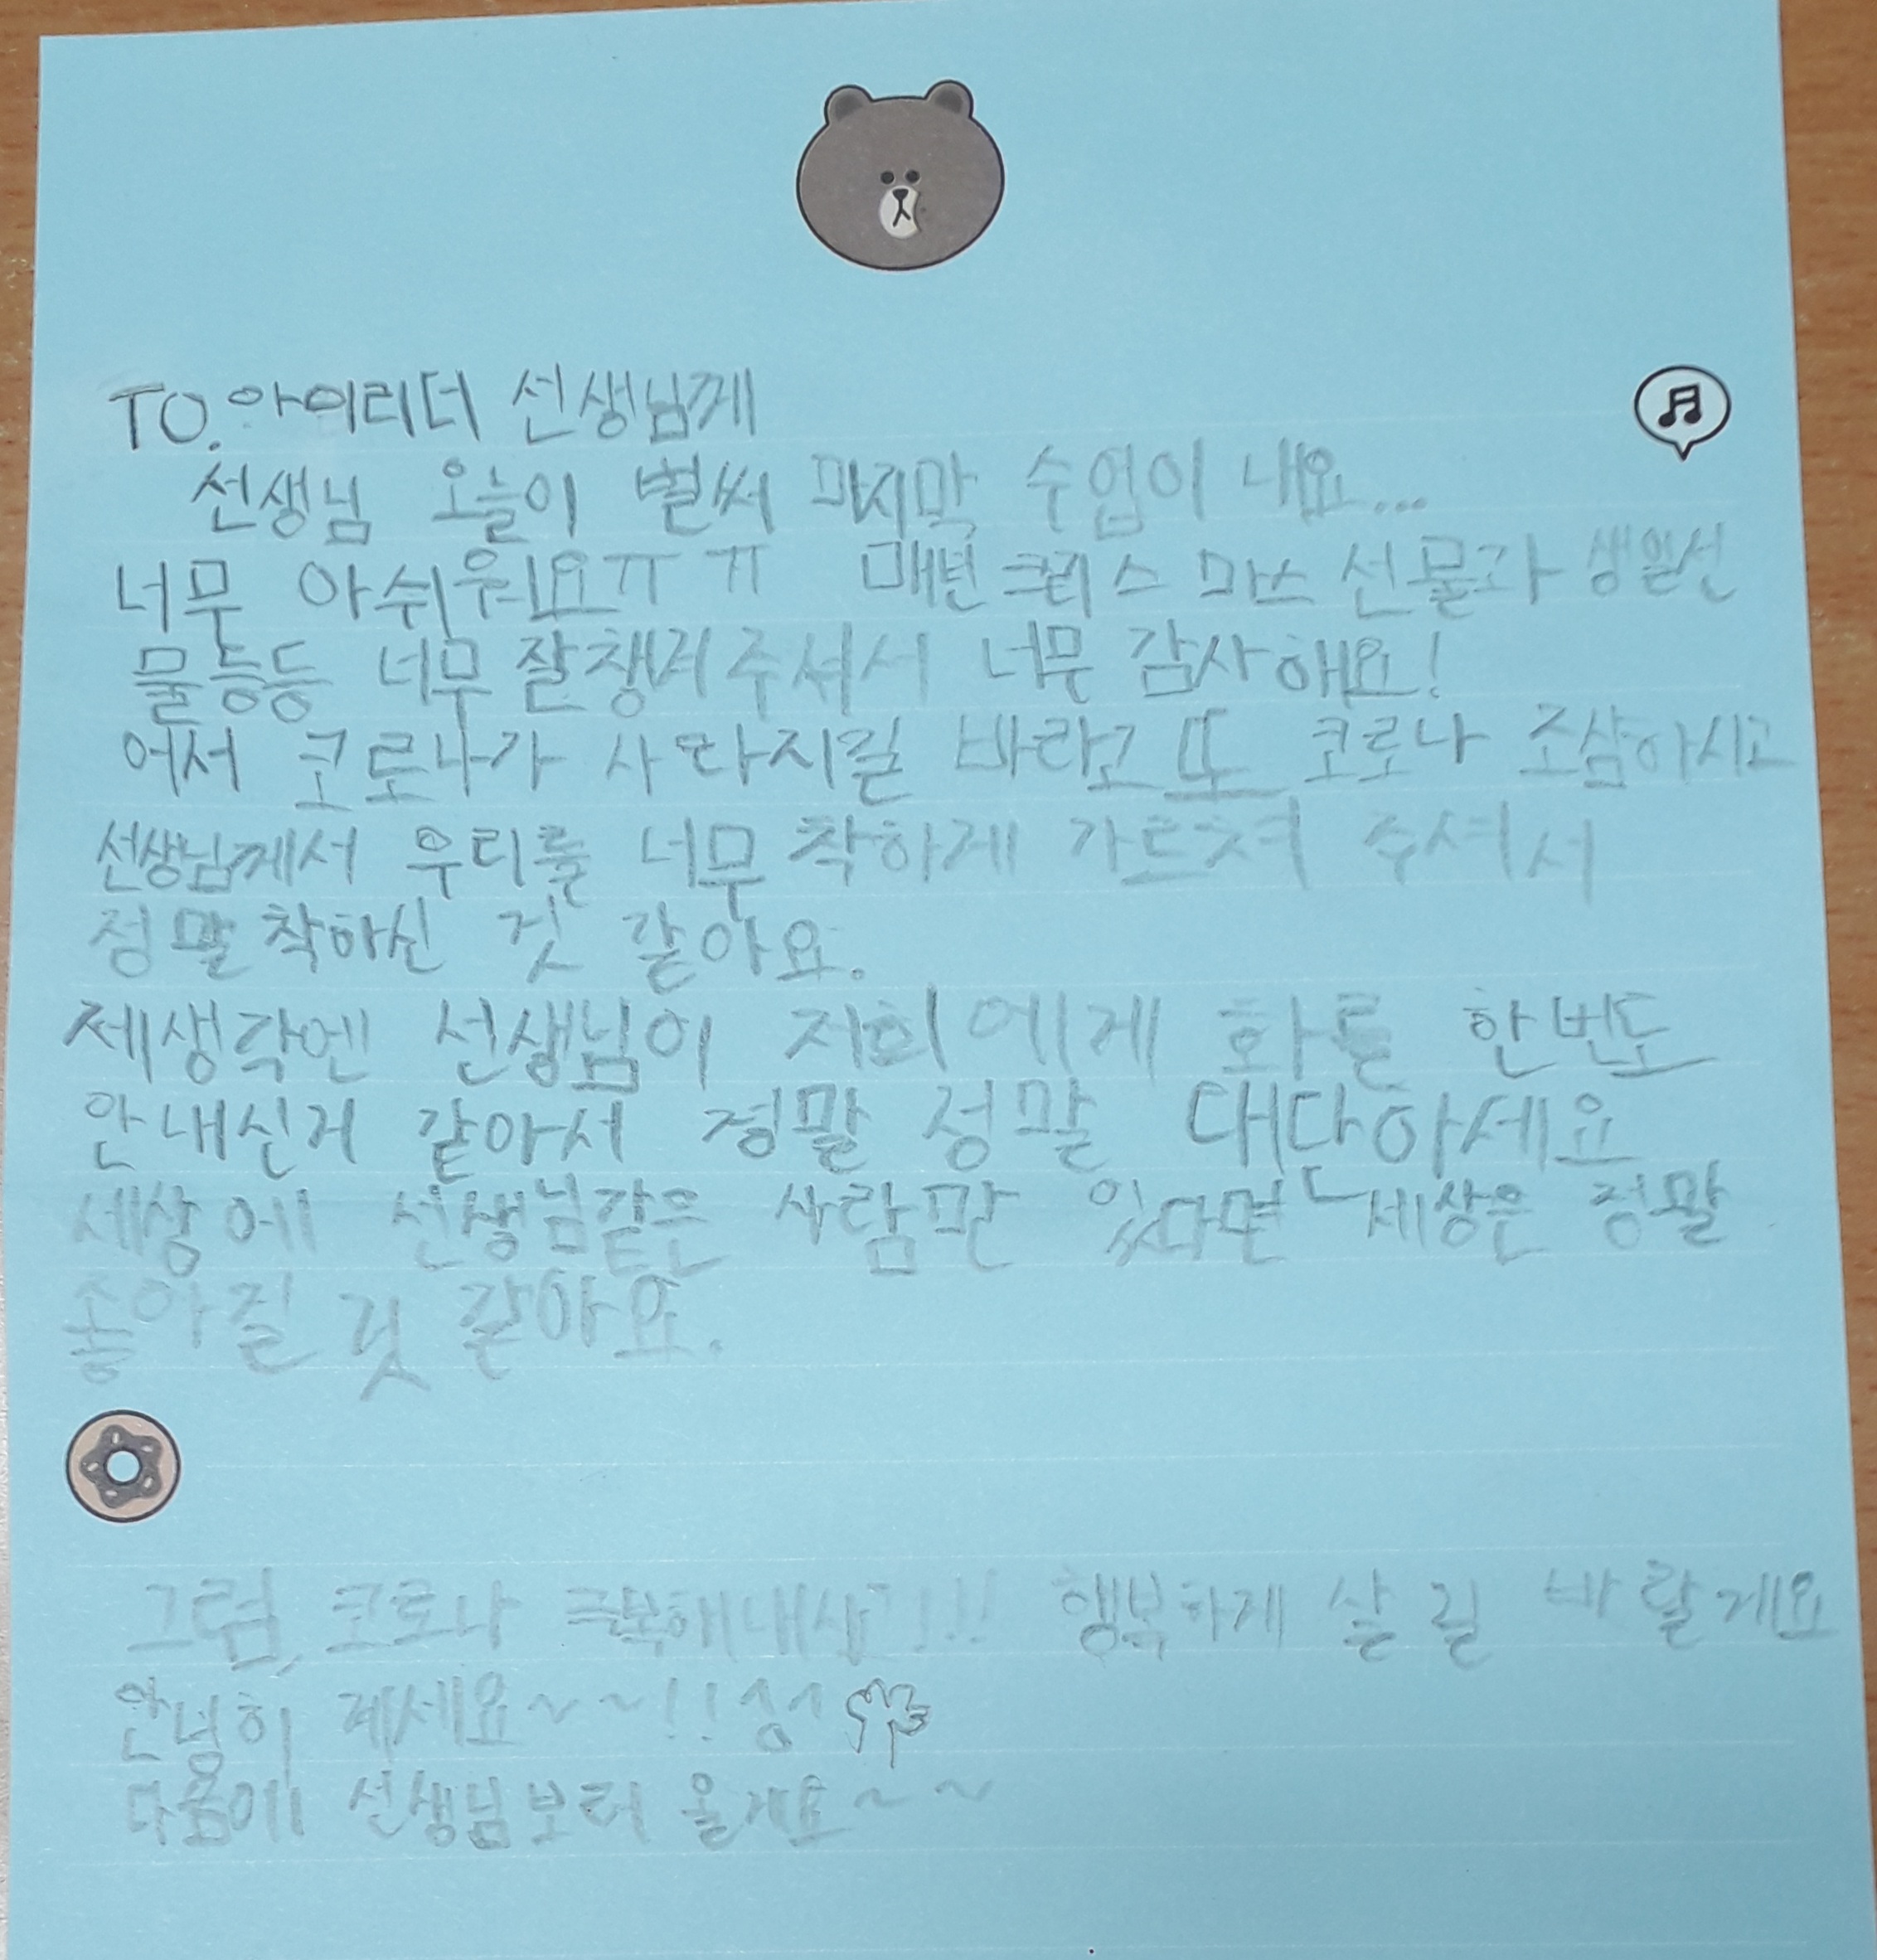 TO.아이리더 선생님께
선생님 오늘이 벌써 마지막 수업이 내요...
너무 아쉬워요ㅠㅠ 매번 크리스마스 선물과 생일선
물등등 너무 잘챙겨주셔서 너무 감사해요!
어서 코로나가 사라지길 바라고 또 코로나 조심하시고
선생님께서 우리를 너무 착하게 가르쳐 주셔서
정말 착하신 것 같아요.
제생각엔 선생님이 저희에게 화를 한번도
안내신거 같아서 정말 정말 대단하세요
세상에 선생님같은 사람만 있다면 세상은 정말
좋아질 것 같아요.
그럼, 코로나 극복해내시고!!! 행복하게 살길 바랄게요
안녕히 계세요~~!!^^
다음에 선생님보러 올게요~~